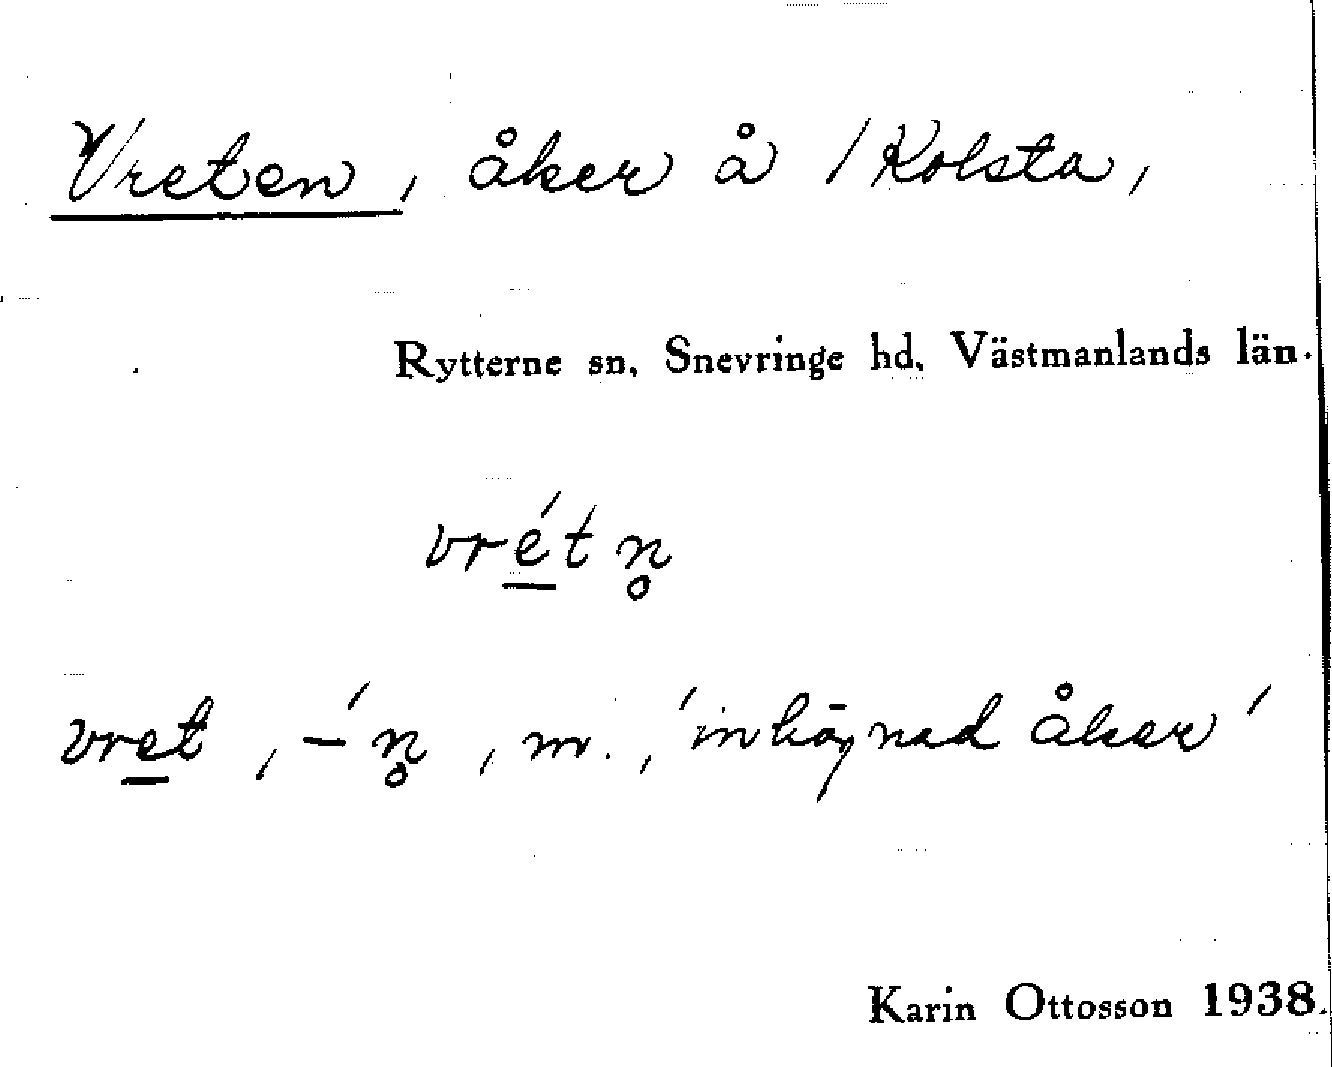 Vreten, åker å /Kolsta,
Rytterne sn, Snevringe hd, Västmanlands län.
vré̲tn̥
vre̲t, –́n̥, m., 'inhägnad åker'
Karin Ottosson 1938.